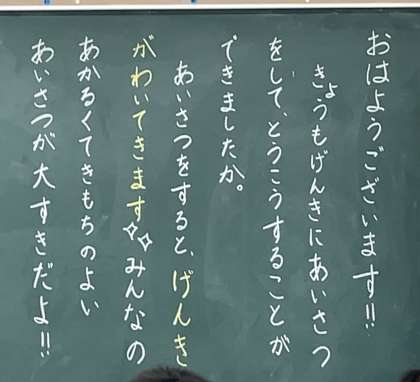 おはようございます!!
きょうもげんきにあいさつ
をして、とうこうすることが
できましたか。
あいさつをすると、げんき
がわいてきます✨みんなの
あかるくてきもちのよい
あいさつが大すきだよ!!